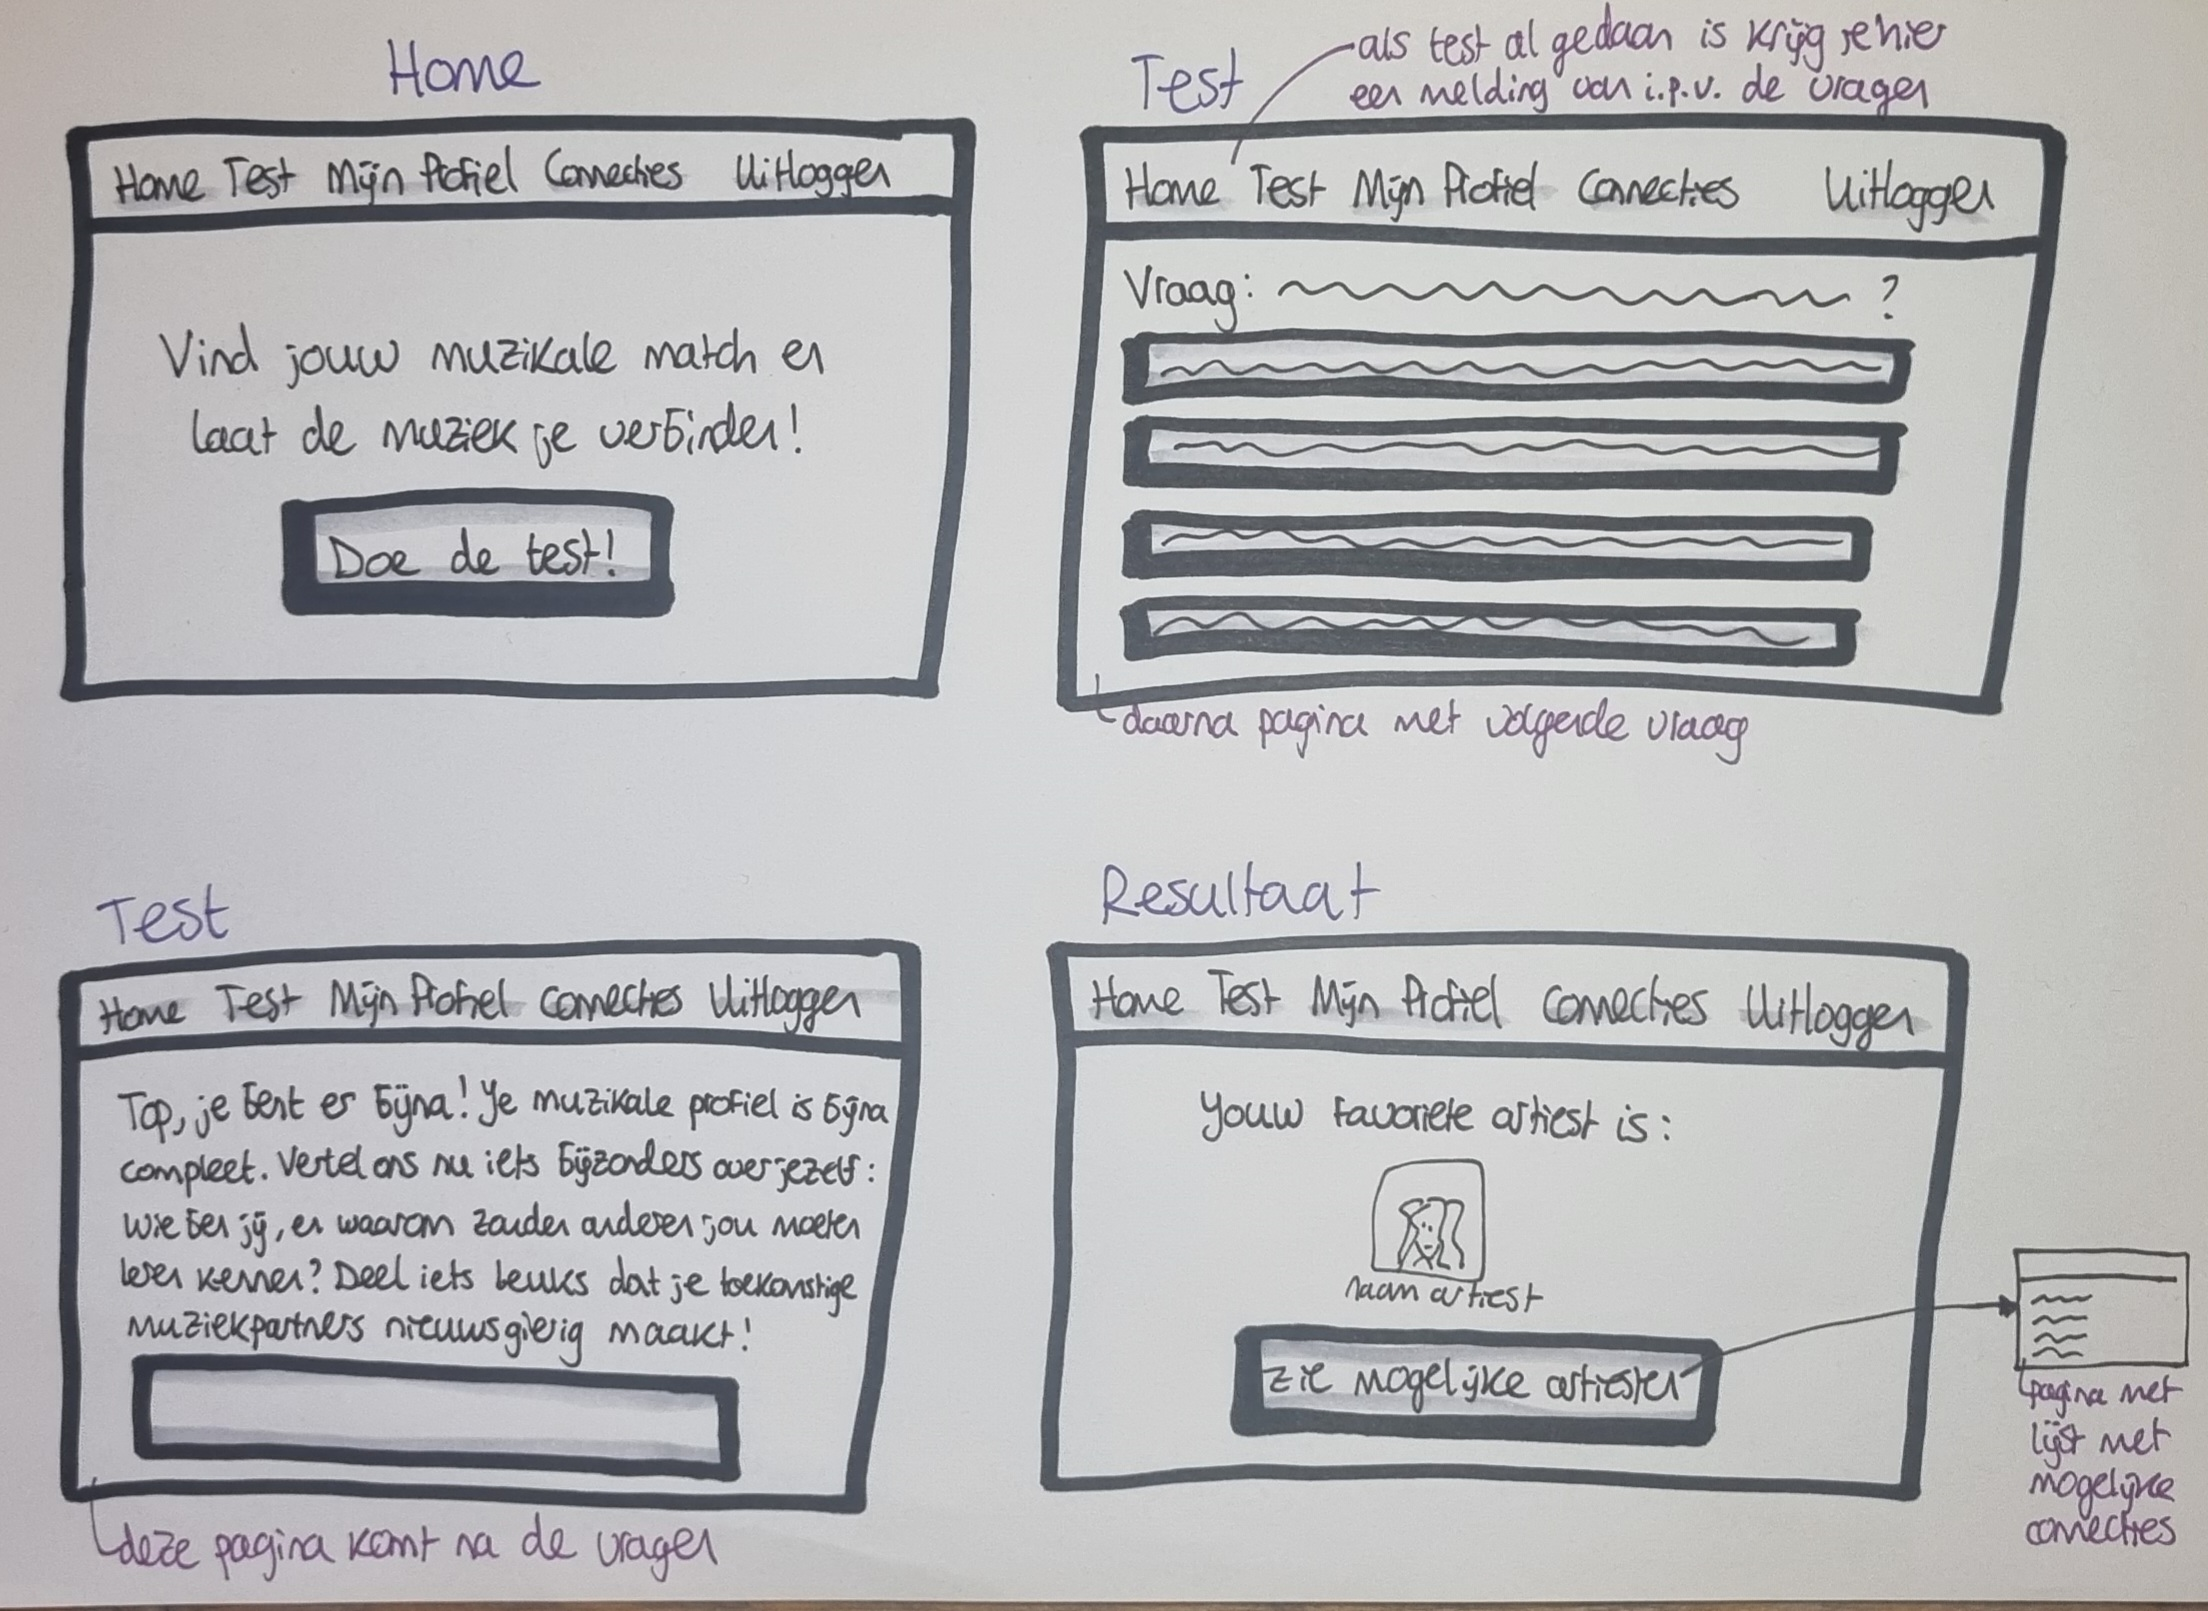 Home
Home Test Mijn Profiel Connecties Uitloggen
Vind jouw muzikale match en
laat de muziek je verbinden!
Doe de test!
Test
als test al gedaan is krijg je hier
een melding van i.p.v. de vragen
Home Test Mijn Profiel Connecties Uitloggen
Vraag: ?
daarna pagina met volgende vraag
Test
Home Test Mijn Profiel Connecties Uitloggen
Top, je bent er bijna! Je muzikale profiel is bijna
compleet. Vertel ons nu iets bijzonders over jezelf:
wie ben jij, en waarom zouden anderen jou moeten
leren kennen? Deel iets leuks dat je toekomstige
muziekpartners nieuwsgierig maakt!
deze pagina komt na de vragen
Resultaat
Home Test Mijn Profiel Connecties Uitloggen
Jouw favoriete artiest is:
naam artiest
zie mogelijke artiesten
pagina met
lijst met
mogelijke
connecties